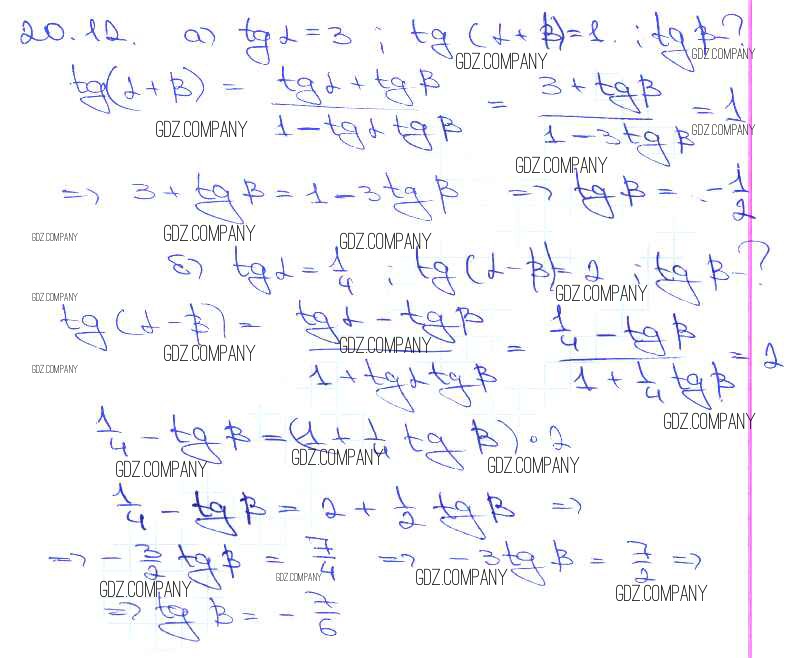 20.12. а) tg α = 3 ; tg (α + β) = 1. ; tg β - ?
GDZ.COMPANY GDZ.COMPANY
tg(α + β) = (tg α + tg β)/(1 - tg α tg β) = (3 + tg β)/(1 - 3 tg β) = 1
GDZ.COMPANY GDZ.COMPANY GDZ.COMPANY
=> 3 + tg β = 1 - 3 tg β => tg β = - 1/2
GDZ.COMPANY GDZ.COMPANY GDZ.COMPANY
б) tg α = 1/4 ; tg (α - β) = 2 ; tg β - ?
GDZ.COMPANY GDZ.COMPANY
tg (α - β) = (tg α - tg β)/(1 + tg α tg β) = (1/4 - tg β)/(1 + 1/4 tg β) = 2
GDZ.COMPANY GDZ.COMPANY GDZ.COMPANY GDZ.COMPANY
1/4 - tg β = (1 + 1/4 tg β) · 2
GDZ.COMPANY GDZ.COMPANY GDZ.COMPANY
1/4 - tg β = 2 + 1/2 tg β =>
=> - 3/2 tg β = 7/4 => - 3 tg β = 7/2 =>
GDZ.COMPANY GDZ.COMPANY GDZ.COMPANY GDZ.COMPANY
=> tg β = - 7/6